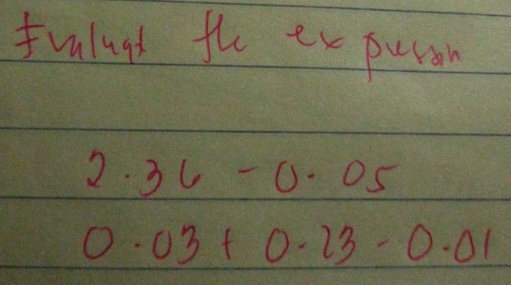 Evaluat the expression
2.36 - 0.05
0.03 + 0.23 - 0.01